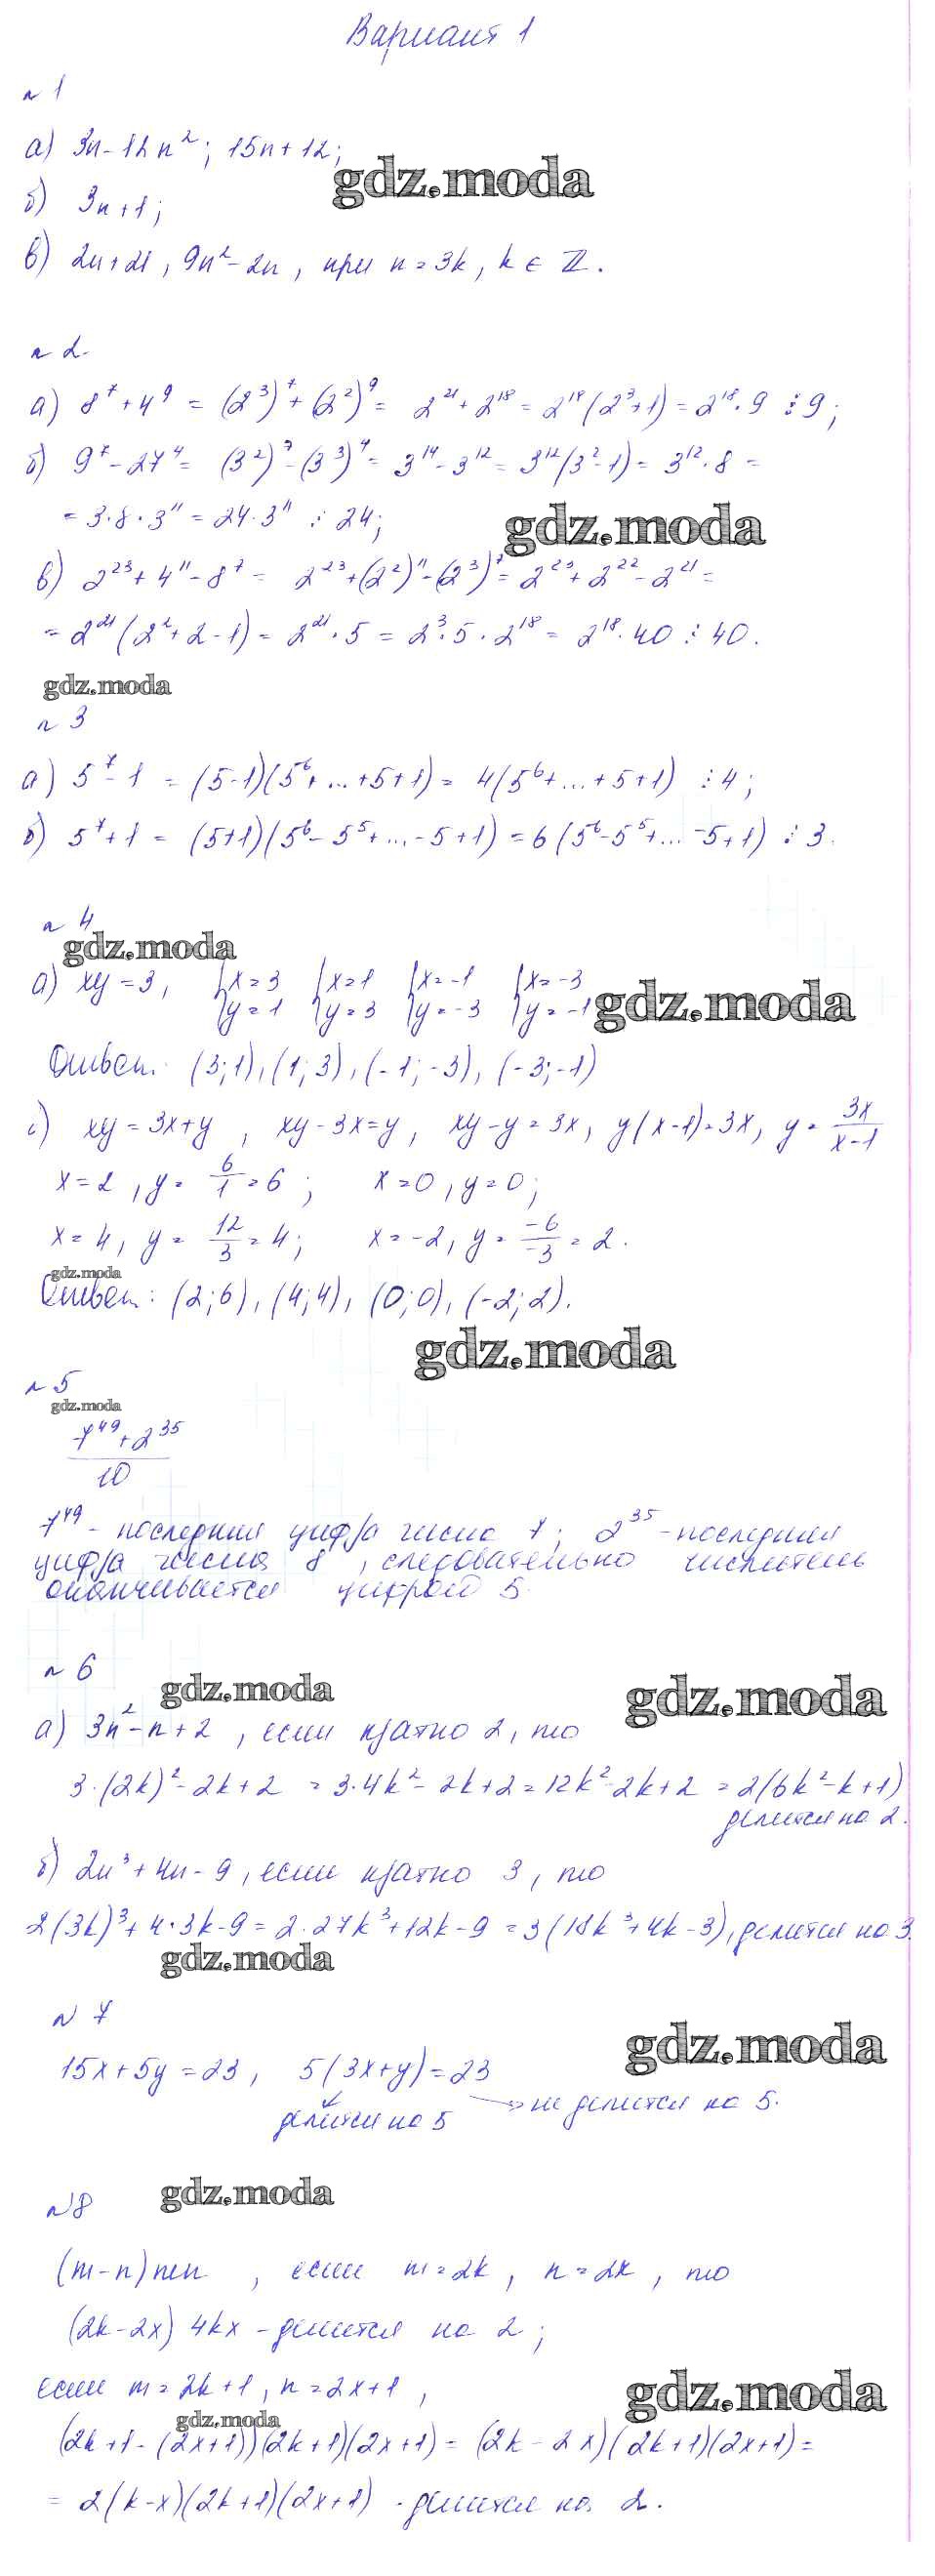 Вариант 1
№ 1
а) 3n - 12n²; 15n + 12;
gdz.moda
б) 3n + 1;
в) 2n + 21, 9n² - 2n, при n = 3k, k ∈ ℤ.
№ 2.
а) 8⁷ + 4⁹ = (2³)⁷ + (2²)⁹ = 2²¹ + 2¹⁸ = 2¹⁸(2³ + 1) = 2¹⁸ · 9 ⋮ 9;
б) 9⁷ - 27⁴ = (3²)⁷ - (3³)⁴ = 3¹⁴ - 3¹² = 3¹²(3² - 1) = 3¹² · 8 =
= 3 · 8 · 3¹¹ = 24 · 3¹¹ ⋮ 24;
gdz.moda
в) 2²³ + 4¹¹ - 8⁷ = 2²³ + (2²)¹¹ - (2³)⁷ = 2²³ + 2²² - 2²¹ =
= 2²¹(2² + 2 - 1) = 2²¹ · 5 = 2³ · 5 · 2¹⁸ = 2¹⁸ · 40 ⋮ 40.
gdz.moda
№ 3
а) 5⁷ - 1 = (5 - 1)(5⁶ + ... + 5 + 1) = 4(5⁶ + ... + 5 + 1) ⋮ 4;
б) 5⁷ + 1 = (5 + 1)(5⁶ - 5⁵ + ... - 5 + 1) = 6(5⁶ - 5⁵ + ... - 5 + 1) ⋮ 3.
№ 4
gdz.moda
а) xy = 3, {x = 3 {x = 1 {x = -1 {x = -3
{y = 1 {y = 3 {y = -3 {y = -1
gdz.moda
Ответ: (3; 1), (1; 3), (-1; -3), (-3; -1)
б) xy = 3x + y, xy - 3x = y, xy - y = 3x, y(x - 1) = 3x, y = 3x/(x - 1)
x = 2, y = 6/1 = 6; x = 0, y = 0;
x = 4, y = 12/3 = 4; x = -2, y = -6/-3 = 2.
gdz.moda
Ответ: (2; 6), (4; 4), (0; 0), (-2; 2).
gdz.moda
№ 5
gdz.moda
7⁴⁹ + 2³⁵
10
7⁴⁹ - последняя цифра числа 7; 2³⁵ - последняя
цифра числа 8, следовательно числитель
оканчивается цифрой 5.
№ 6
gdz.moda
gdz.moda
а) 3n² - n + 2, если кратно 2, то
3 · (2k)² - 2k + 2 = 3 · 4k² - 2k + 2 = 12k² - 2k + 2 = 2(6k² - k + 1)
делится на 2.
б) 2n³ + 4n - 9, если кратно 3, то
2(3k)³ + 4 · 3k - 9 = 2 · 27k³ + 12k - 9 = 3(18k³ + 4k - 3), делится на 3.
gdz.moda
№ 7
gdz.moda
15x + 5y = 23, 5(3x + y) = 23
делится на 5 → не делится на 5.
gdz.moda
№8
(m - n)mn, если m = 2k, n = 2x, то
(2k - 2x) 4kx - делится на 2;
если m = 2k + 1, n = 2x + 1,
gdz.moda
gdz.moda
(2k + 1 - (2x + 1))(2k + 1)(2x + 1) = (2k - 2x)(2k + 1)(2x + 1) =
= 2(k - x)(2k + 1)(2x + 1) - делится на 2.